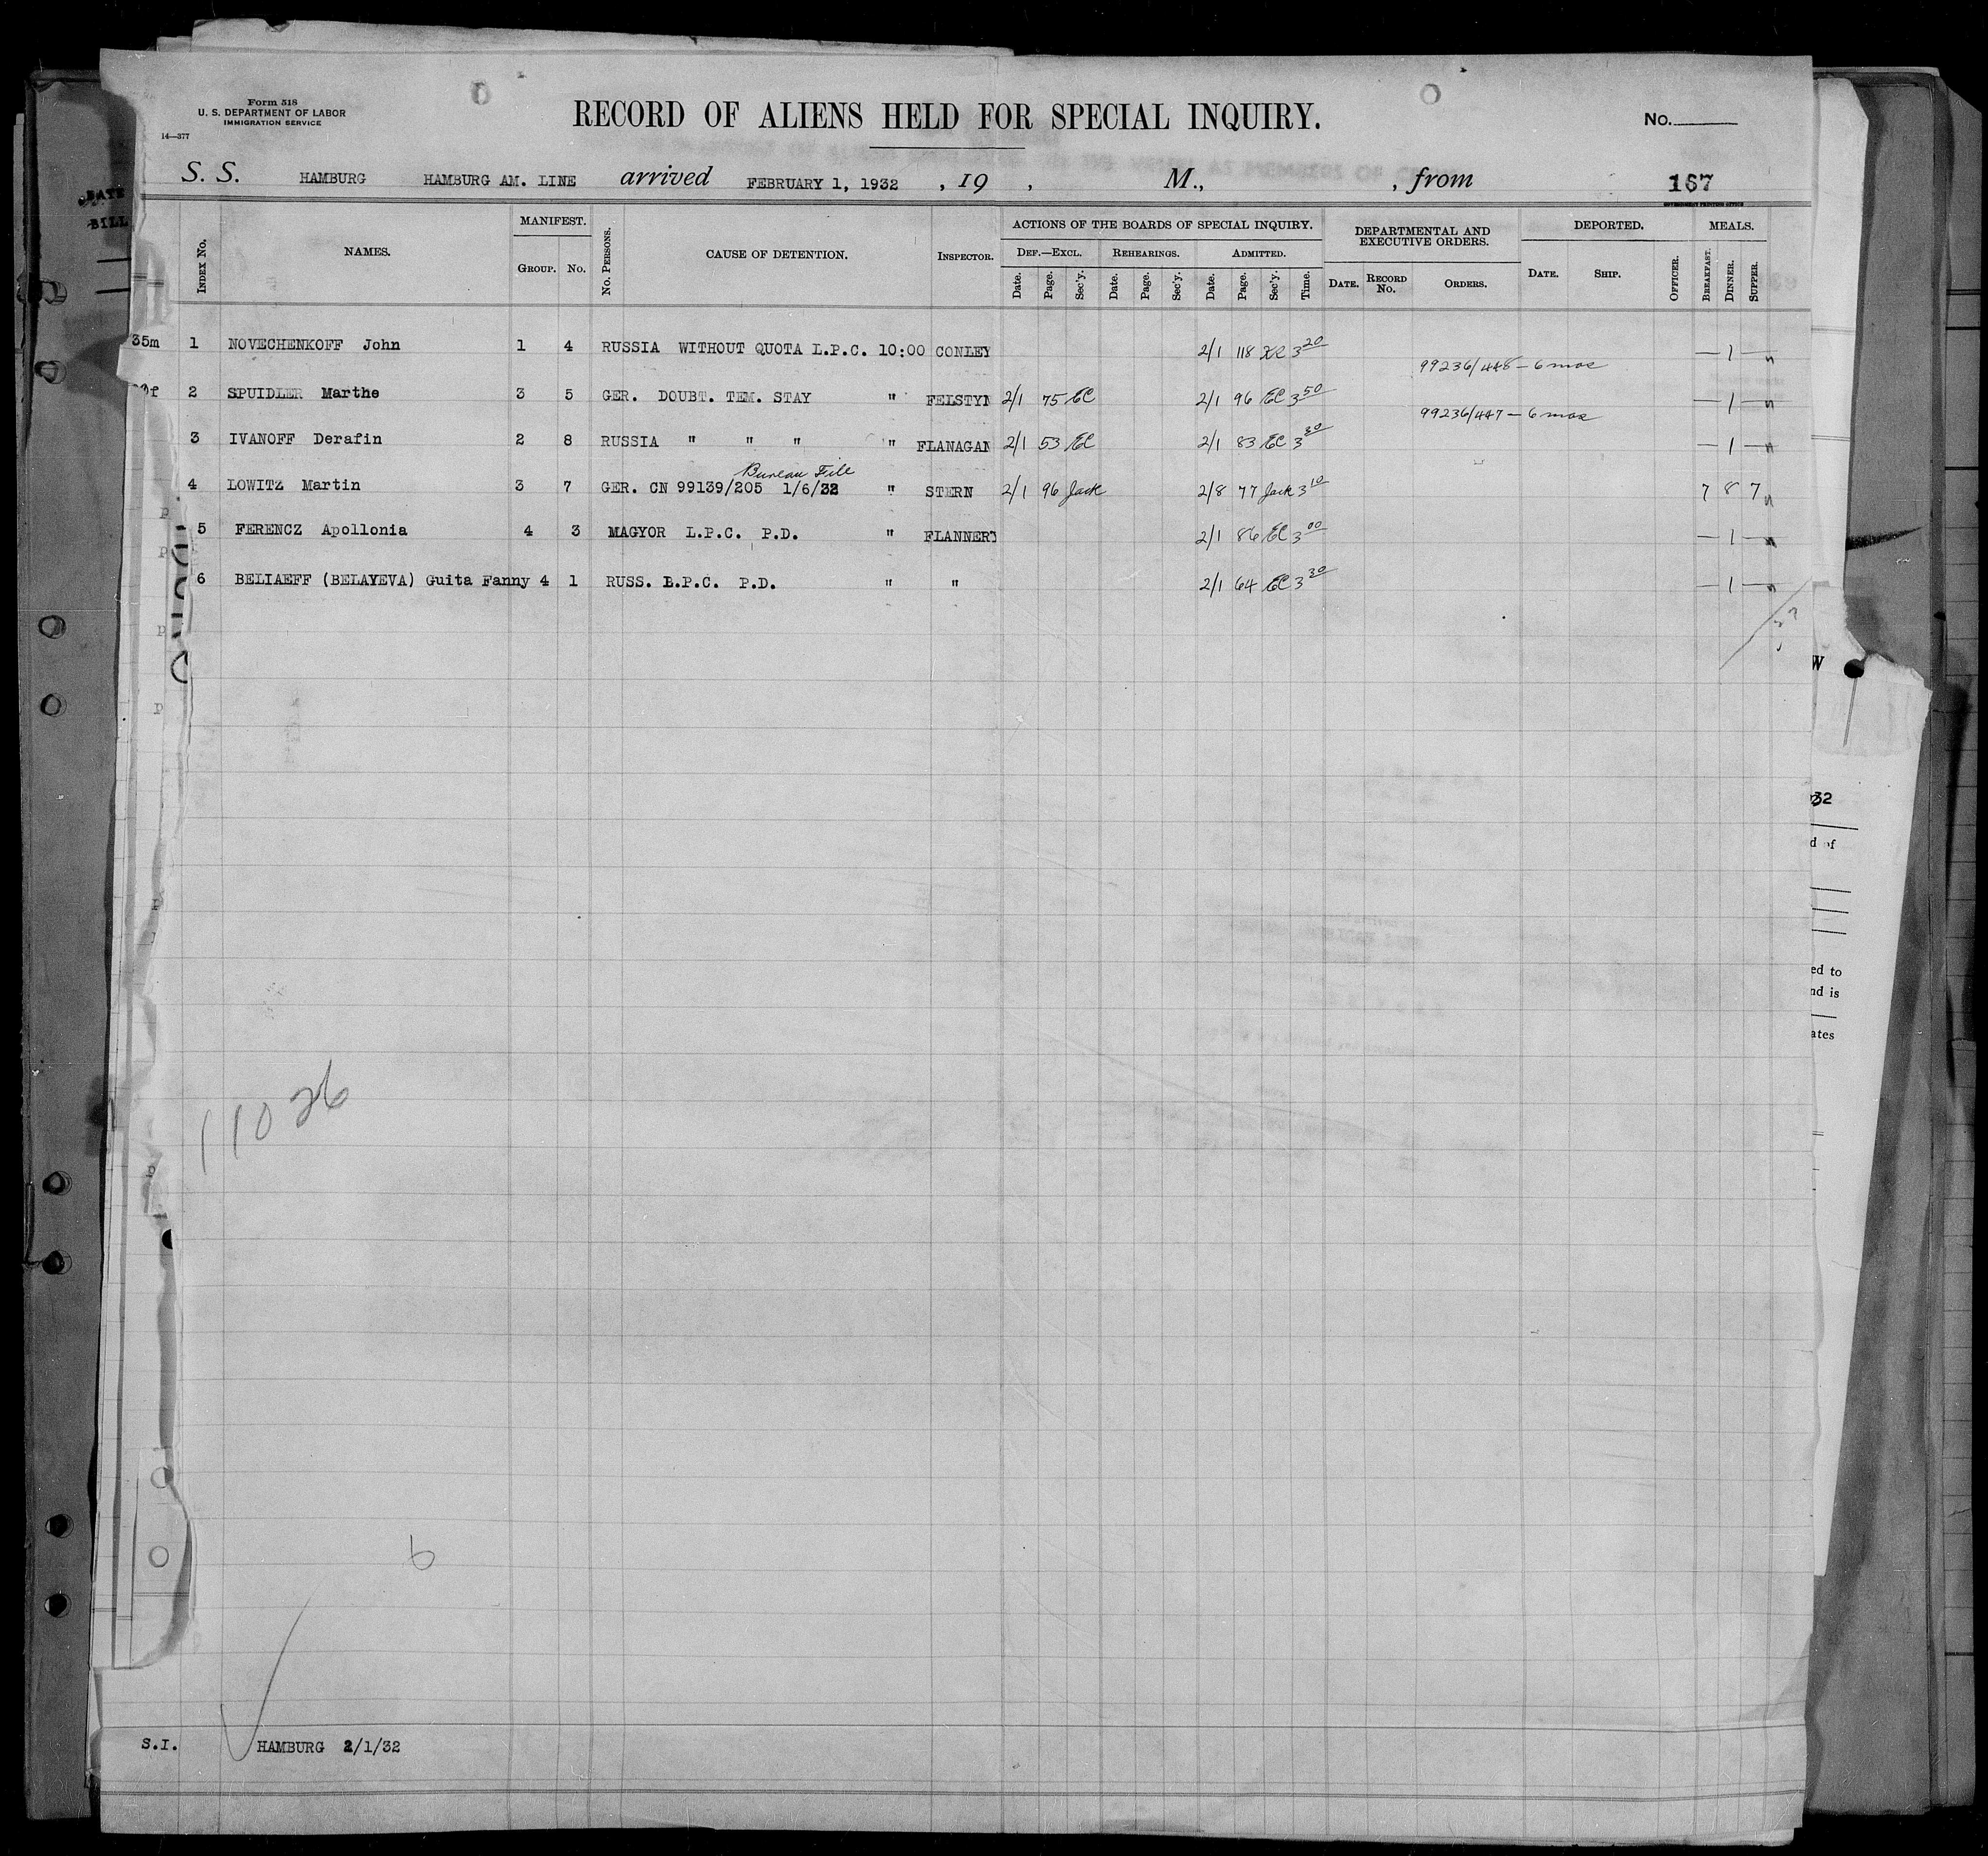 Form 518
U. S. DEPARTMENT OF LABOR
IMMIGRATION SERVICE
14—377
RECORD OF ALIENS HELD FOR SPECIAL INQUIRY.
No.
S. S. HAMBURG HAMBURG AM. LINE arrived FEBRUARY 1, 1932 , 19 , M., , from 167
DATE
BILL
INDEX No. NAMES. MANIFEST. GROUP. No. No. PERSONS. CAUSE OF DETENTION. INSPECTOR. ACTIONS OF THE BOARDS OF SPECIAL INQUIRY. DEF.—EXCL. Date. Page. Sec'y. REHEARINGS. Date. Page. Sec'y. ADMITTED. Date. Page. Sec'y. Time. DEPARTMENTAL AND EXECUTIVE ORDERS. DATE. RECORD No. ORDERS. DEPORTED. DATE. SHIP. OFFICER. MEALS. BREAKFAST. DINNER. SUPPER.
35m 1 NOVECHENKOFF John 1 4 RUSSIA WITHOUT QUOTA L.P.C. 10:00 CONLEY 2/1 118 3 20 — 1 —
99236/448 — 6 mos
f 2 SPUIDLER Marthe 3 5 GER. DOUBT. TEM. STAY " FELSTYN 2/1 75 EC 2/1 96 EC 3 50 — 1 —
99236/447 — 6 mos
3 IVANOFF Derafin 2 8 RUSSIA " " " " FLANAGAN 2/1 53 EC 2/1 83 EC 3 30 — 1 —
Bureau File
4 LOWITZ Martin 3 7 GER. CN 99139/205 1/6/32 " STERN 2/1 96 Jack 2/8 77 Jack 3 10 7 8 7
5 FERENCZ Apollonia 4 3 MAGYOR L.P.C. P.D. " FLANNERY 2/1 86 EC 3 00 — 1 —
6 BELIAEFF (BELAYEVA) Guita Fanny 4 1 RUSS. L.P.C. P.D. " " 2/1 64 EC 3 30 — 1 —
W
32
d of
ed to
nd is
ates
11026
6
S.I. HAMBURG 2/1/32